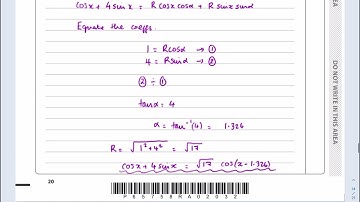 cosx + 4 sinx = R cosx cosα + R sinx sinα
Equate the coeffs.
1 = R cosα → ①
4 = R sinα → ②
② ÷ ①
tanα = 4
α = tan⁻¹(4) = 1.326
R = √1²+4² = √17
cosx + 4 sinx = √17 cos(x - 1.326)
DO NOT WRITE IN THIS AREA
20
P65758RA02032